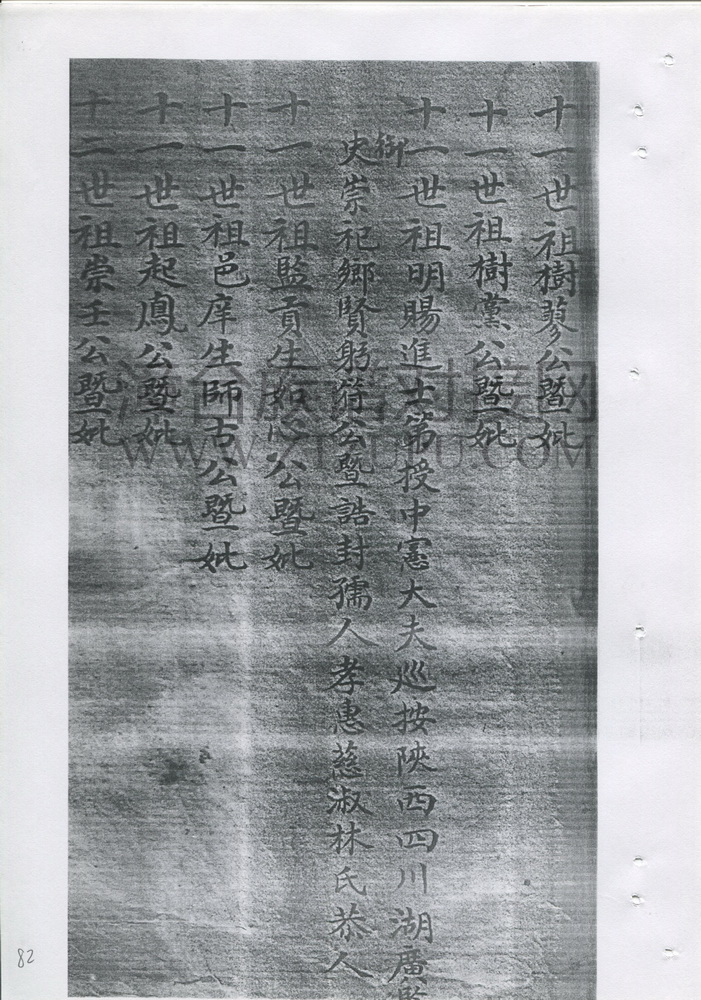 十一世祖樹蓼公暨妣
十一世祖樹黨公暨妣
十一世祖明賜進士第授中憲大夫巡按陝西四川湖廣監
御史崇祀鄉賢躬符公暨誥封孺人孝惠慈淑林氏恭人
十一世祖監貢生如心公暨妣
十一世祖邑庠生師古公暨妣
十一世祖起鳳公暨妣
十二世祖崇壬公暨妣
82